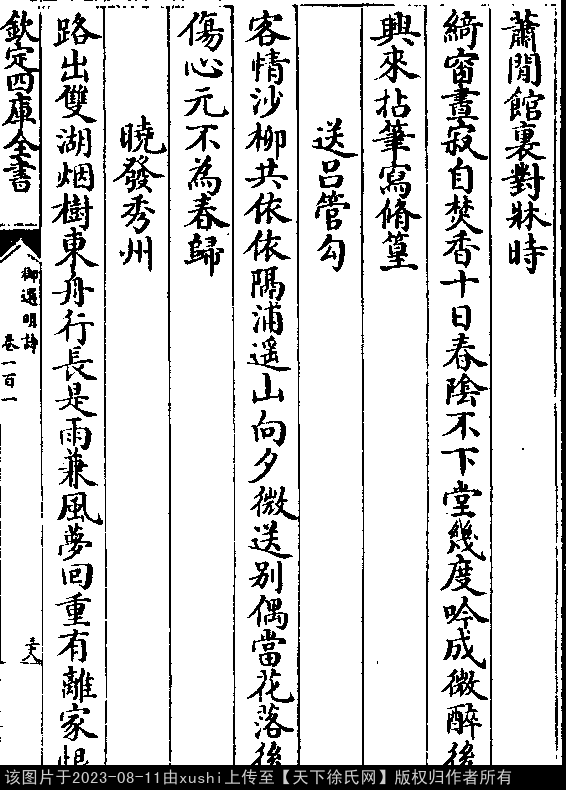 蕭閒館裏對牀時
綺窗晝寂自焚香十日春陰不下堂幾度吟成微醉後
興來拈筆寫脩篁
送吕管勾
客情沙柳共依依隔浦遥山向夕微送别偶當花落後
傷心元不為春歸
曉發秀州
路出雙湖烟樹東舟行長是雨兼風夢回重有離家恨
欽定四庫全書
御選明詩
卷一百一
该图片于2023-08-11由xushi上传至【天下徐氏网】版权归作者所有